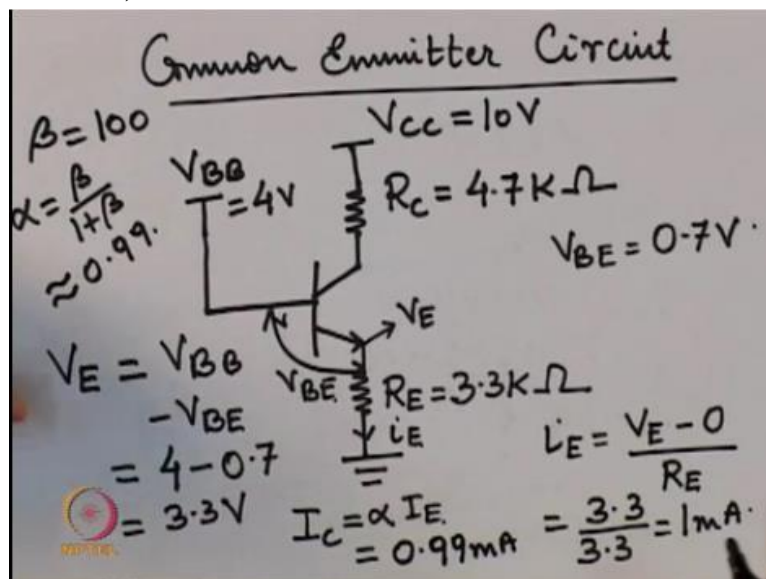 Common Emmitter Circuit
β = 100
α = β / 1+β
≈ 0.99.
VBB
= 4V
VCC = 10V
RC = 4.7KΩ
VBE = 0.7V.
VE
VBE
RE = 3.3KΩ
iE
VE = VBB
-VBE
= 4 - 0.7
= 3.3V
IC = αIE.
= 0.99mA
iE = VE - 0 / RE
= 3.3 / 3.3 = 1mA.
NPTEL